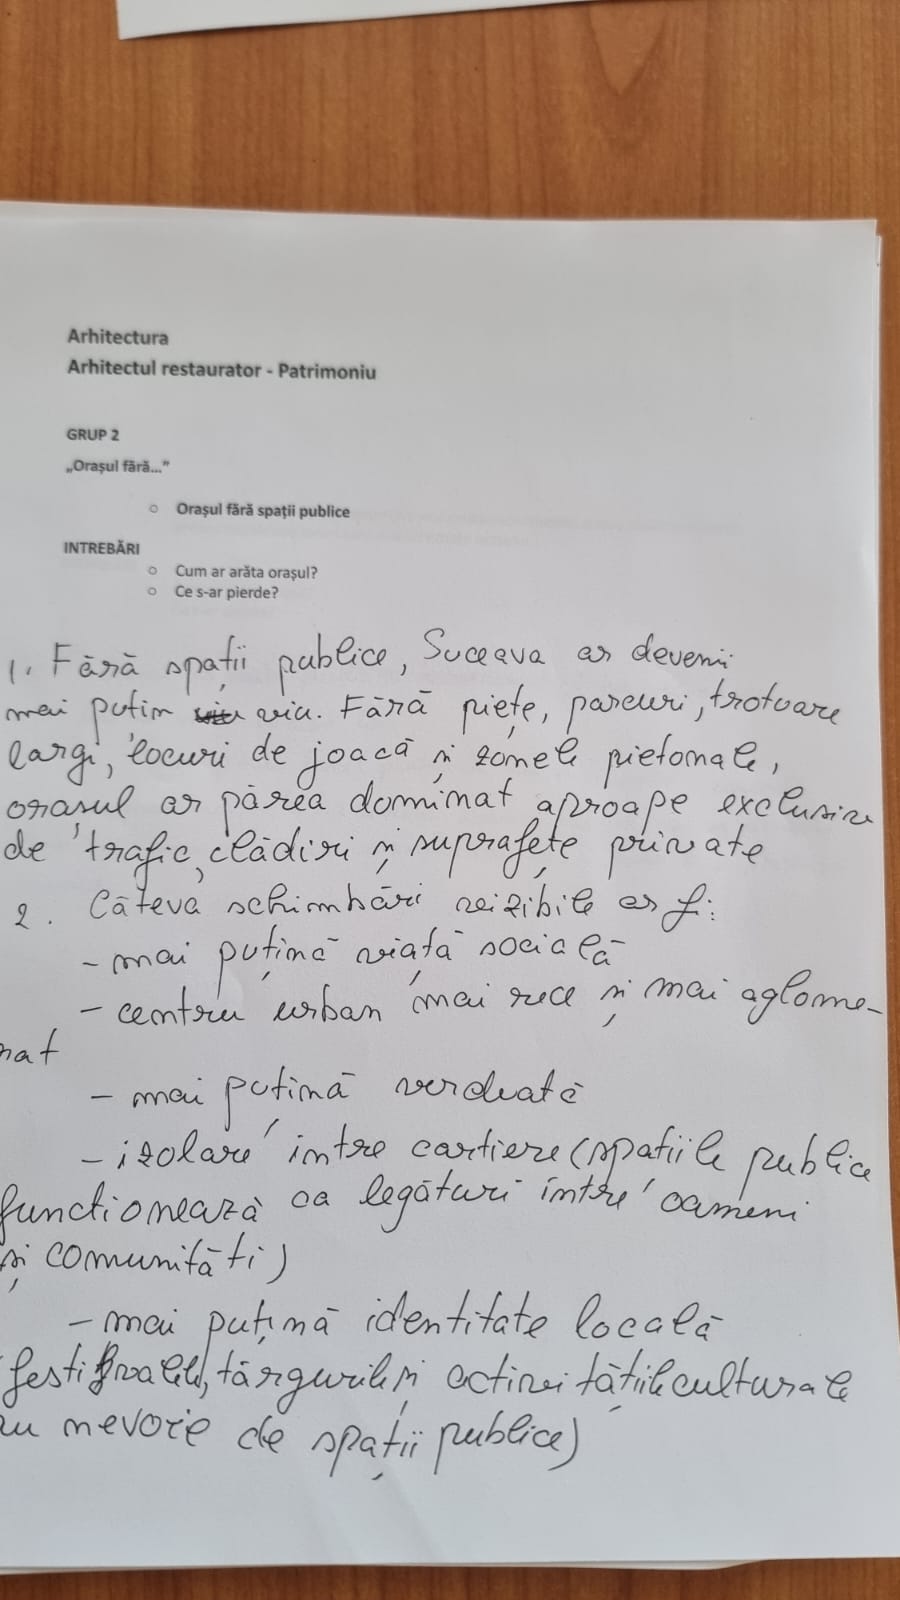 Arhitectura
Arhitectul restaurator - Patrimoniu
GRUP 2
„Orașul fără...”
○ Orașul fără spații publice
INTREBĂRI
○ Cum ar arăta orașul?
○ Ce s-ar pierde?
1. Fără spații publice, Suceava ar devenii
mai puțin viu. Fără piețe, parcuri, trotuare
largi, locuri de joacă și zonele pietonale,
orașul ar părea dominat aproape exclusiv
de trafic, clădiri și suprafețe private
2. Câteva schimbări vizibile ar fi:
- mai puțină viață socială
- centru urban mai rece și mai aglome-
rat
- mai puțină verdeață
- izolare între cartiere (spațiile publice
funcționează ca legături între oameni
și comunități)
- mai puțină identitate locală
festivalele, târgurile și activitățiile culturale
au nevoie de spații publice)